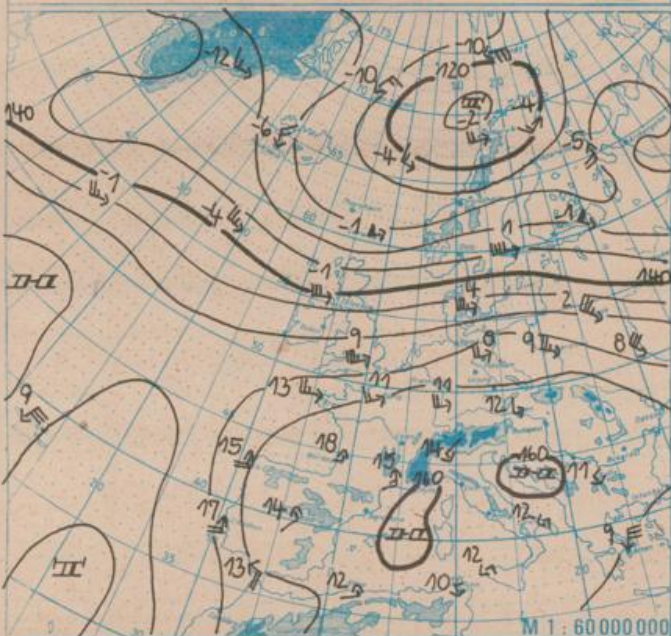 -10
-12
-10
120
-4
T
-2
140
-6
-4
-5
-1
-1
1
-1
-4
-1
140
4
2
H
9
8
9
8
13
11
11
12
9
15
18
15
14
160
H
11
160
17
14
12
9
H
T
13
12
10
12
M 1 : 60 000 000